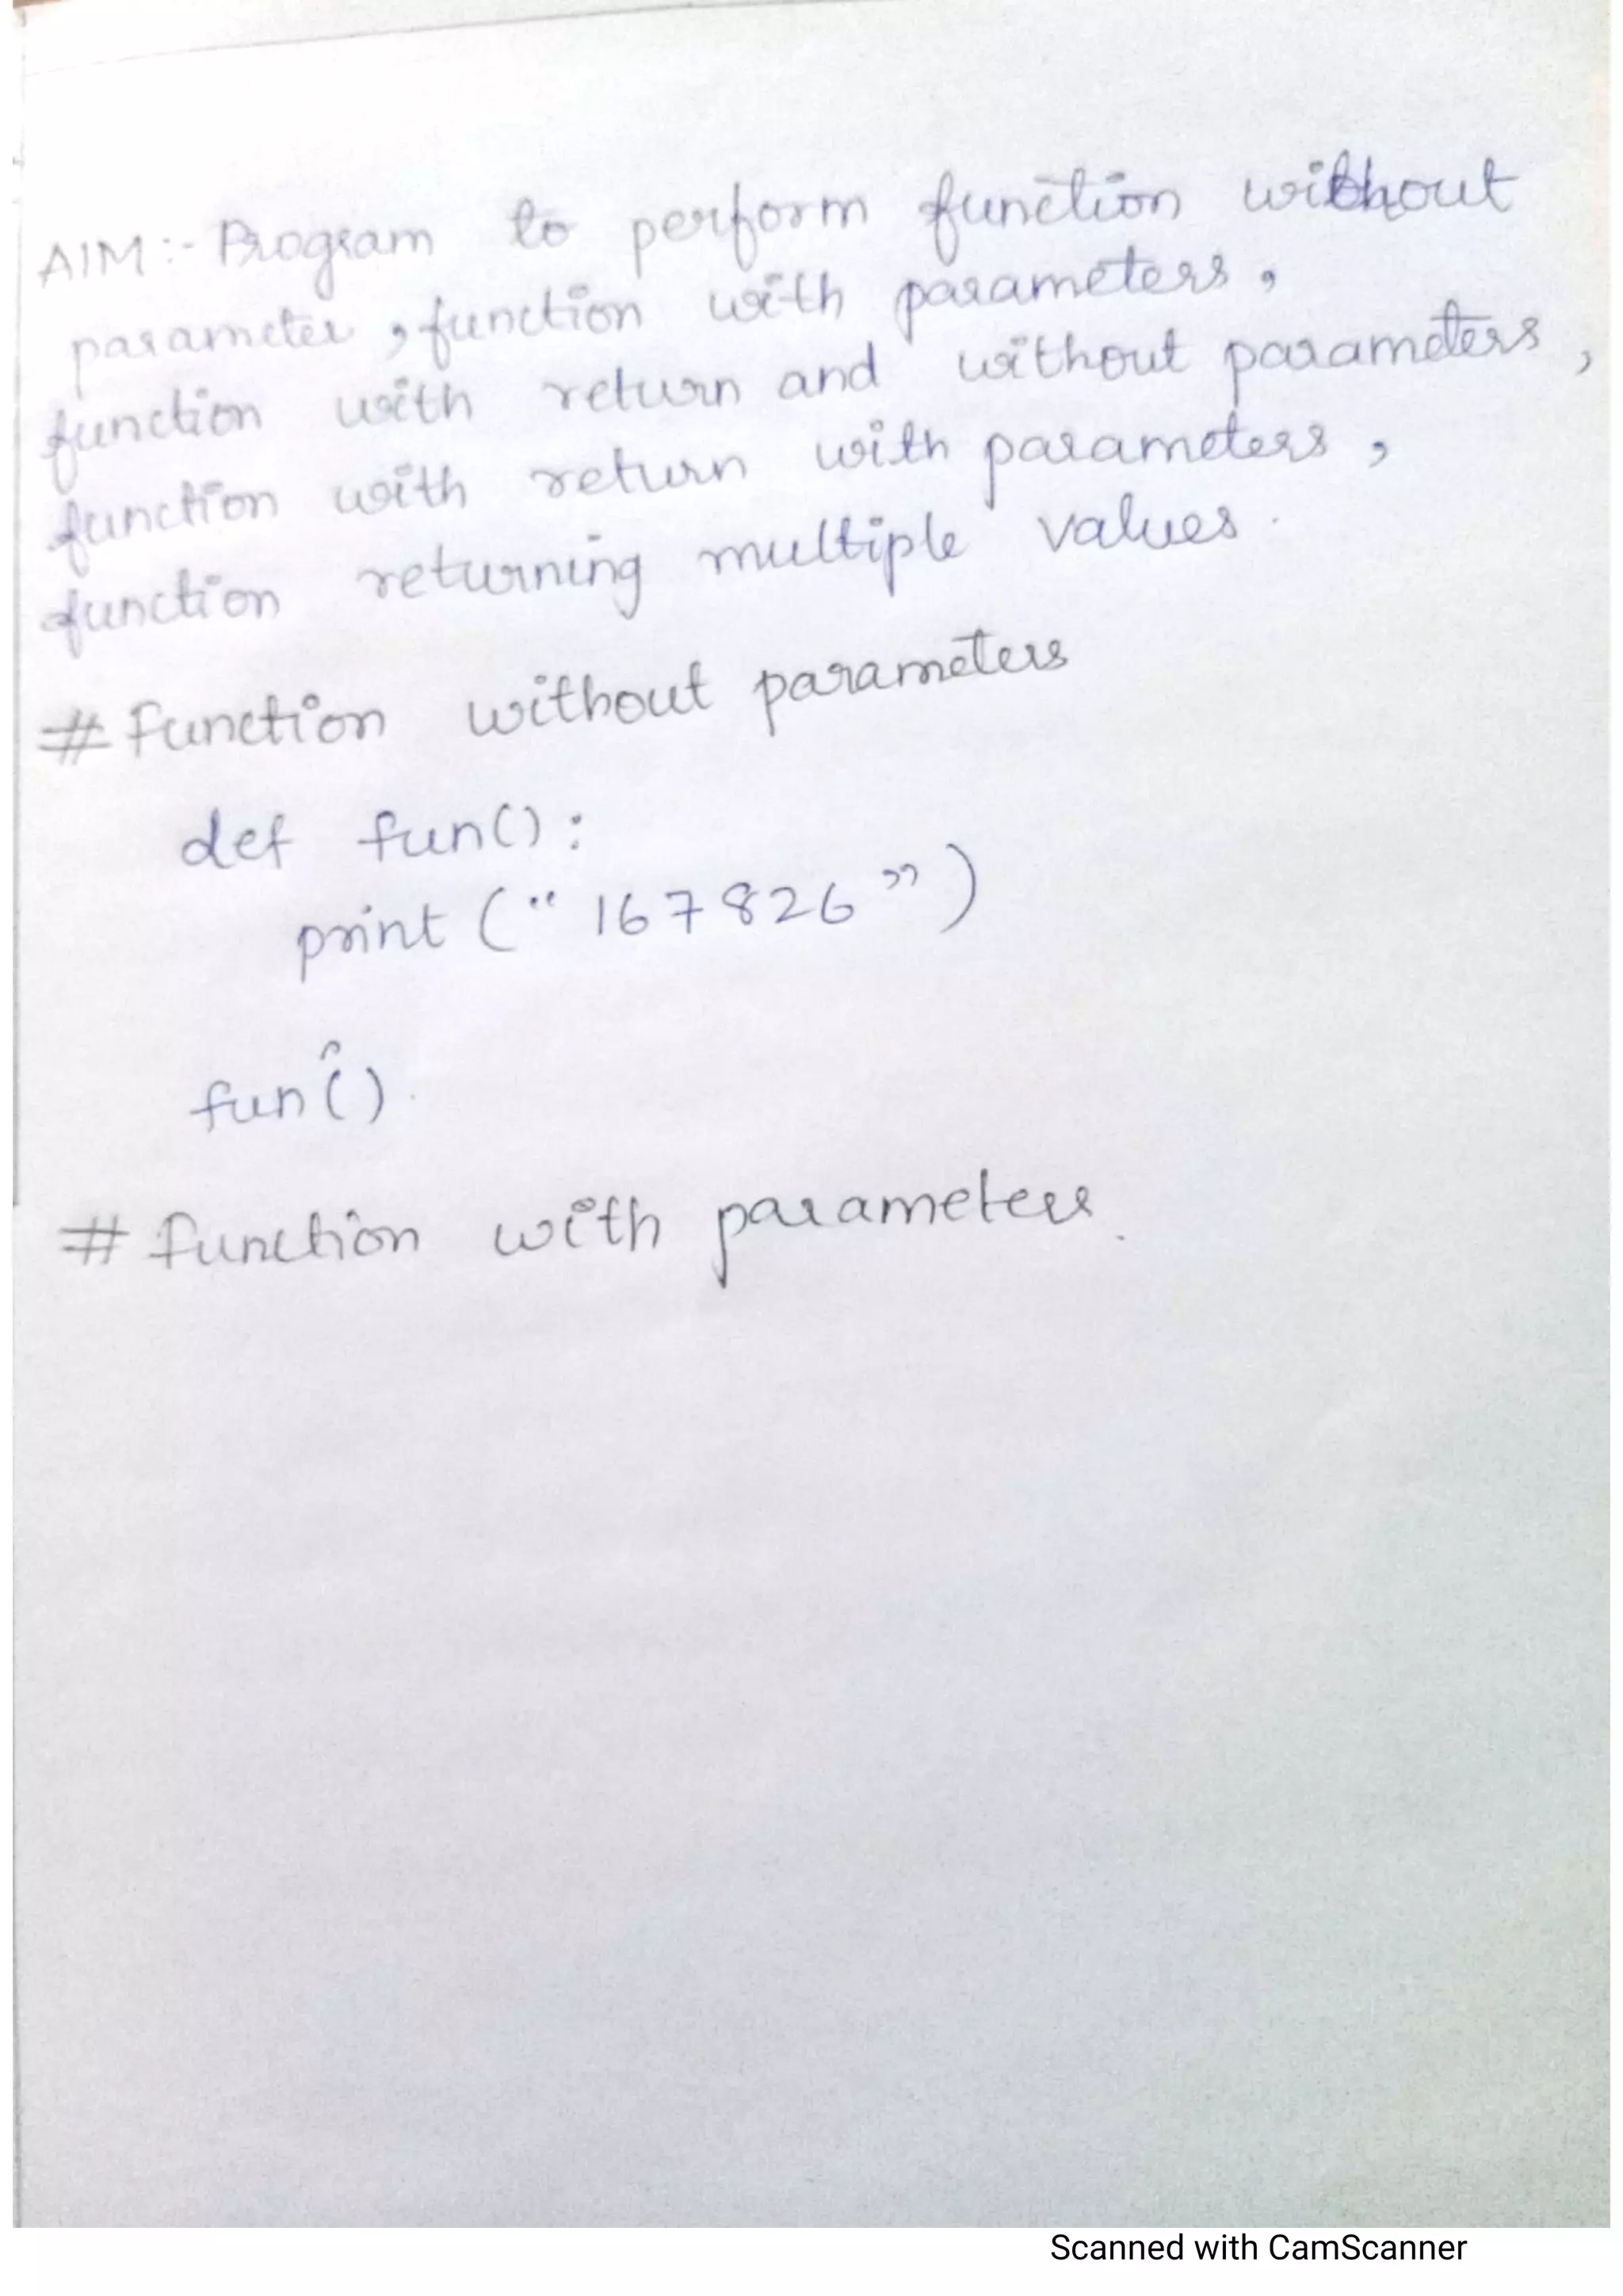 AIM:- Program to perform function without
parameter, function with parameters,
function with return and without parameters,
function with return with parameters,
function returning multiple values.
# Function without parameters
def fun():
print (" 167826 ")
fun()
# Function with parameters.
Scanned with CamScanner